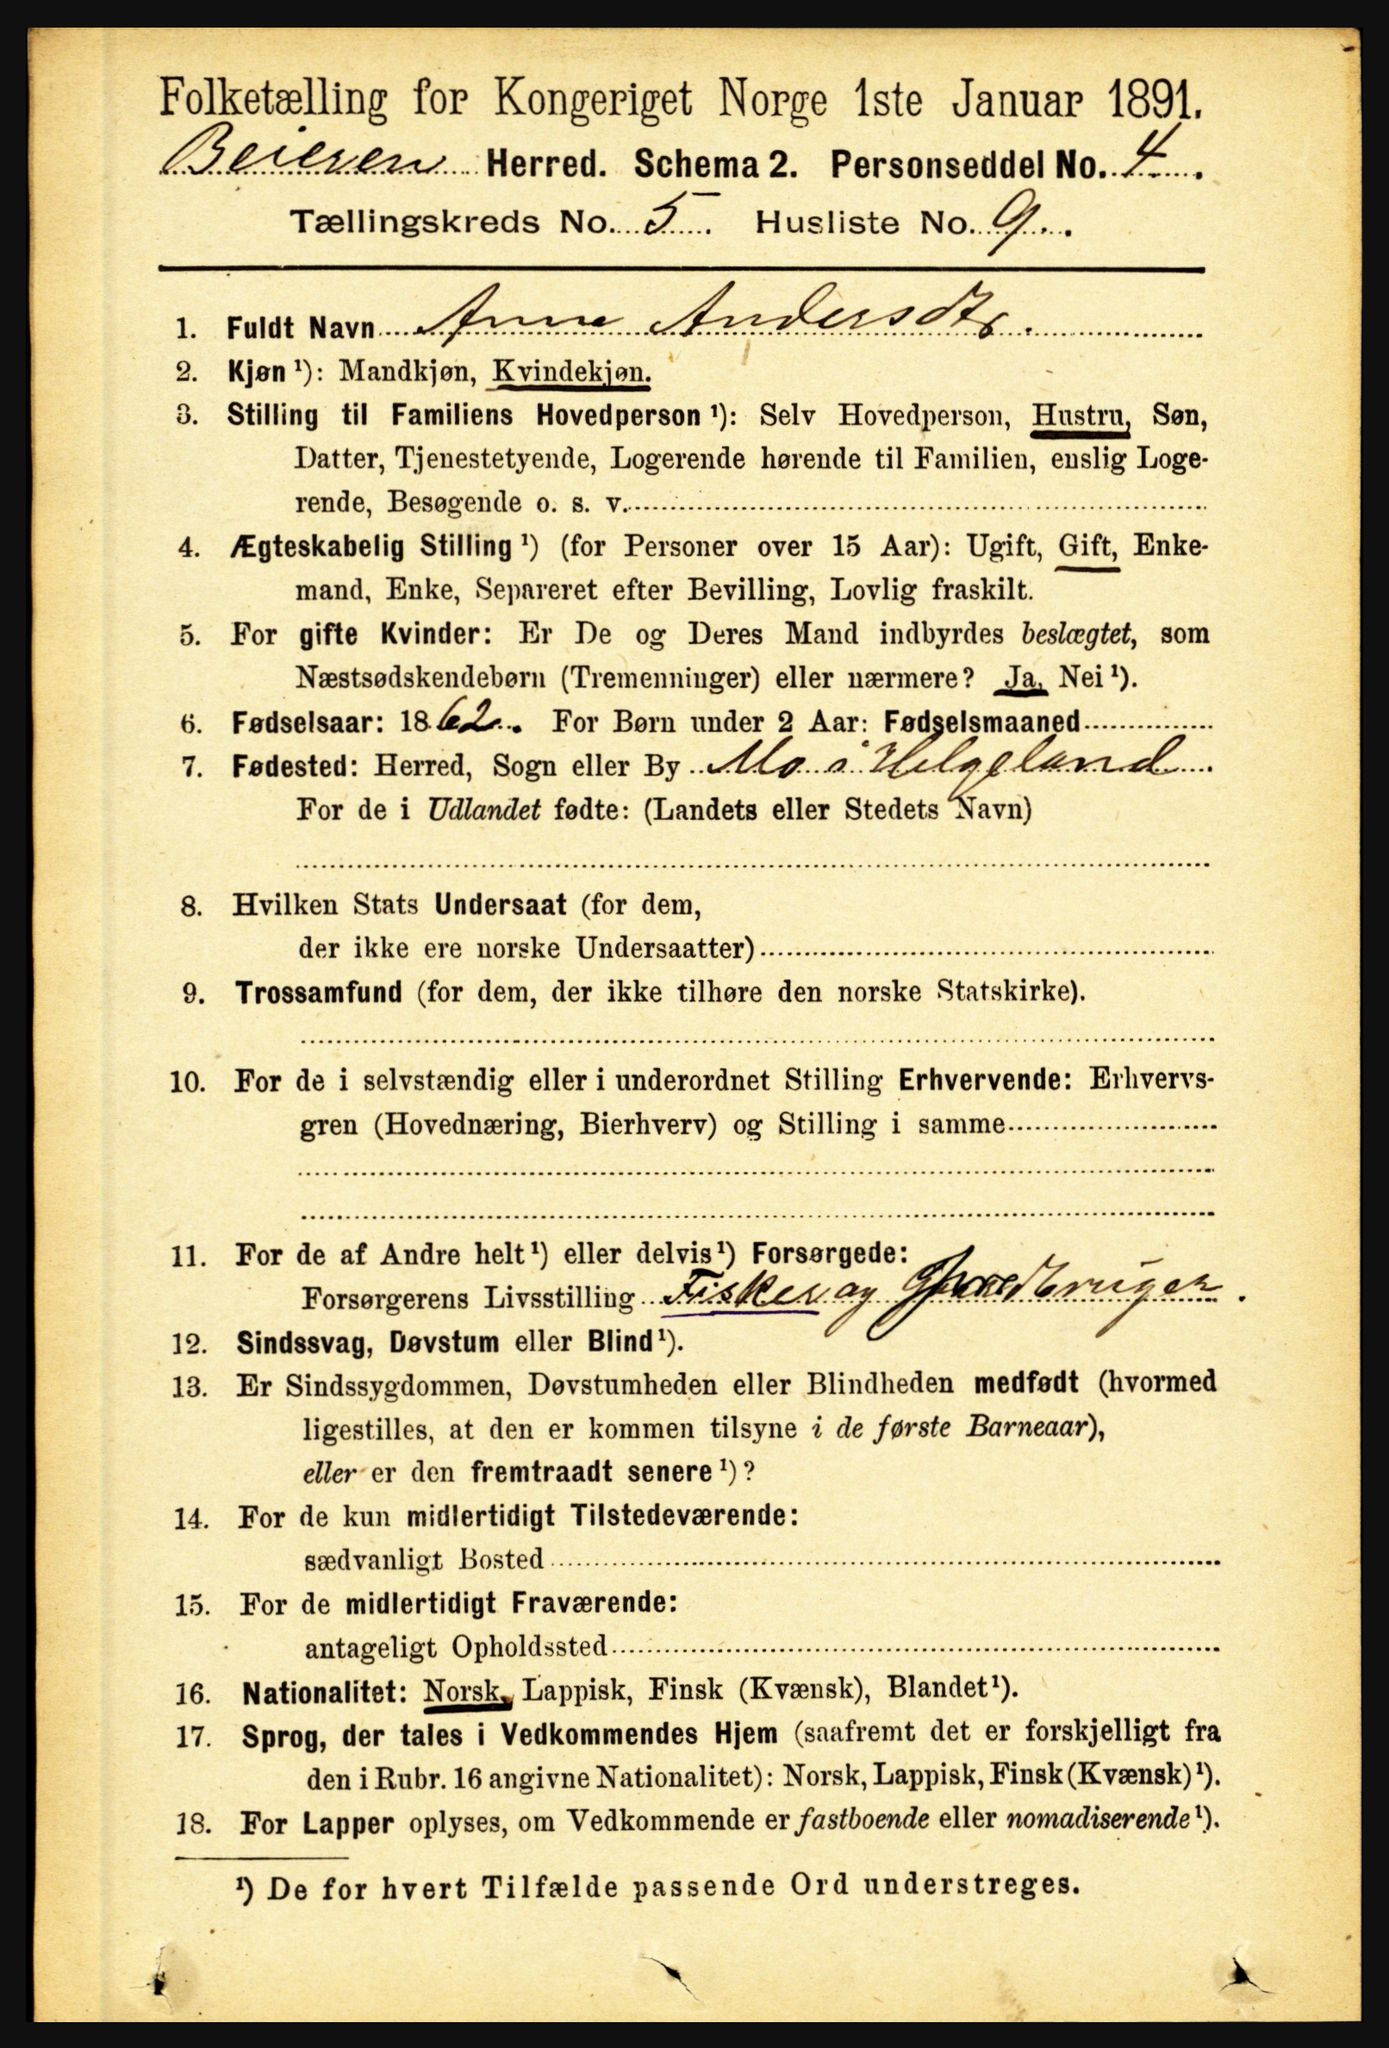 Folketælling for Kongeriget Norge 1ste Januar 1891.
Beieren Herred. Schema 2. Personseddel No. 4.
Tællingskreds No. 5. Husliste No. 9.
1. Fuldt Navn Anne Andersdtr.
2. Kjøn¹): Mandkjøn, Kvindekjøn.
3. Stilling til Familiens Hovedperson¹): Selv Hovedperson, Hustru, Søn,
Datter, Tjenestetyende, Logerende hørende til Familien, enslig Loge-
rende, Besøgende o. s. v.
4. Ægteskabelig Stilling¹) (for Personer over 15 Aar): Ugift, Gift, Enke-
mand, Enke, Separeret efter Bevilling, Lovlig fraskilt.
5. For gifte Kvinder: Er De og Deres Mand indbyrdes beslægtet, som
Næstsødskendebørn (Tremenninger) eller nærmere? Ja, Nei¹).
6. Fødselsaar: 1862. For Børn under 2 Aar: Fødselsmaaned
7. Fødested: Herred, Sogn eller By Mo i Helgeland
For de i Udlandet fødte: (Landets eller Stedets Navn)
8. Hvilken Stats Undersaat (for dem,
der ikke ere norske Undersaatter)
9. Trossamfund (for dem, der ikke tilhøre den norske Statskirke).
10. For de i selvstændig eller i underordnet Stilling Erhvervende: Erhvervs-
gren (Hovednæring, Bierhverv) og Stilling i samme
11. For de af Andre helt¹) eller delvis¹) Forsørgede:
Forsørgerens Livsstilling Fisker og Gaardbruger.
12. Sindssvag, Døvstum eller Blind¹).
13. Er Sindssygdommen, Døvstumheden eller Blindheden medfødt (hvormed
ligestilles, at den er kommen tilsyne i de første Barneaar),
eller er den fremtraadt senere¹)?
14. For de kun midlertidigt Tilstedeværende:
sædvanligt Bosted
15. For de midlertidigt Fraværende:
antageligt Opholdssted
16. Nationalitet: Norsk, Lappisk, Finsk (Kvænsk), Blandet¹).
17. Sprog, der tales i Vedkommendes Hjem (saafremt det er forskjelligt fra
den i Rubr. 16 angivne Nationalitet): Norsk, Lappisk, Finsk (Kvænsk)¹).
18. For Lapper oplyses, om Vedkommende er fastboende eller nomadiserende¹).
¹) De for hvert Tilfælde passende Ord understreges.